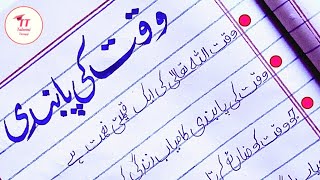 TT
وقت کی پابندی
وقت اللہ تعالیٰ کی ایک قیمتی نعمت ہے
وقت کی پابندی کامیاب زندگی
جو وقت کو ضائع کرتا